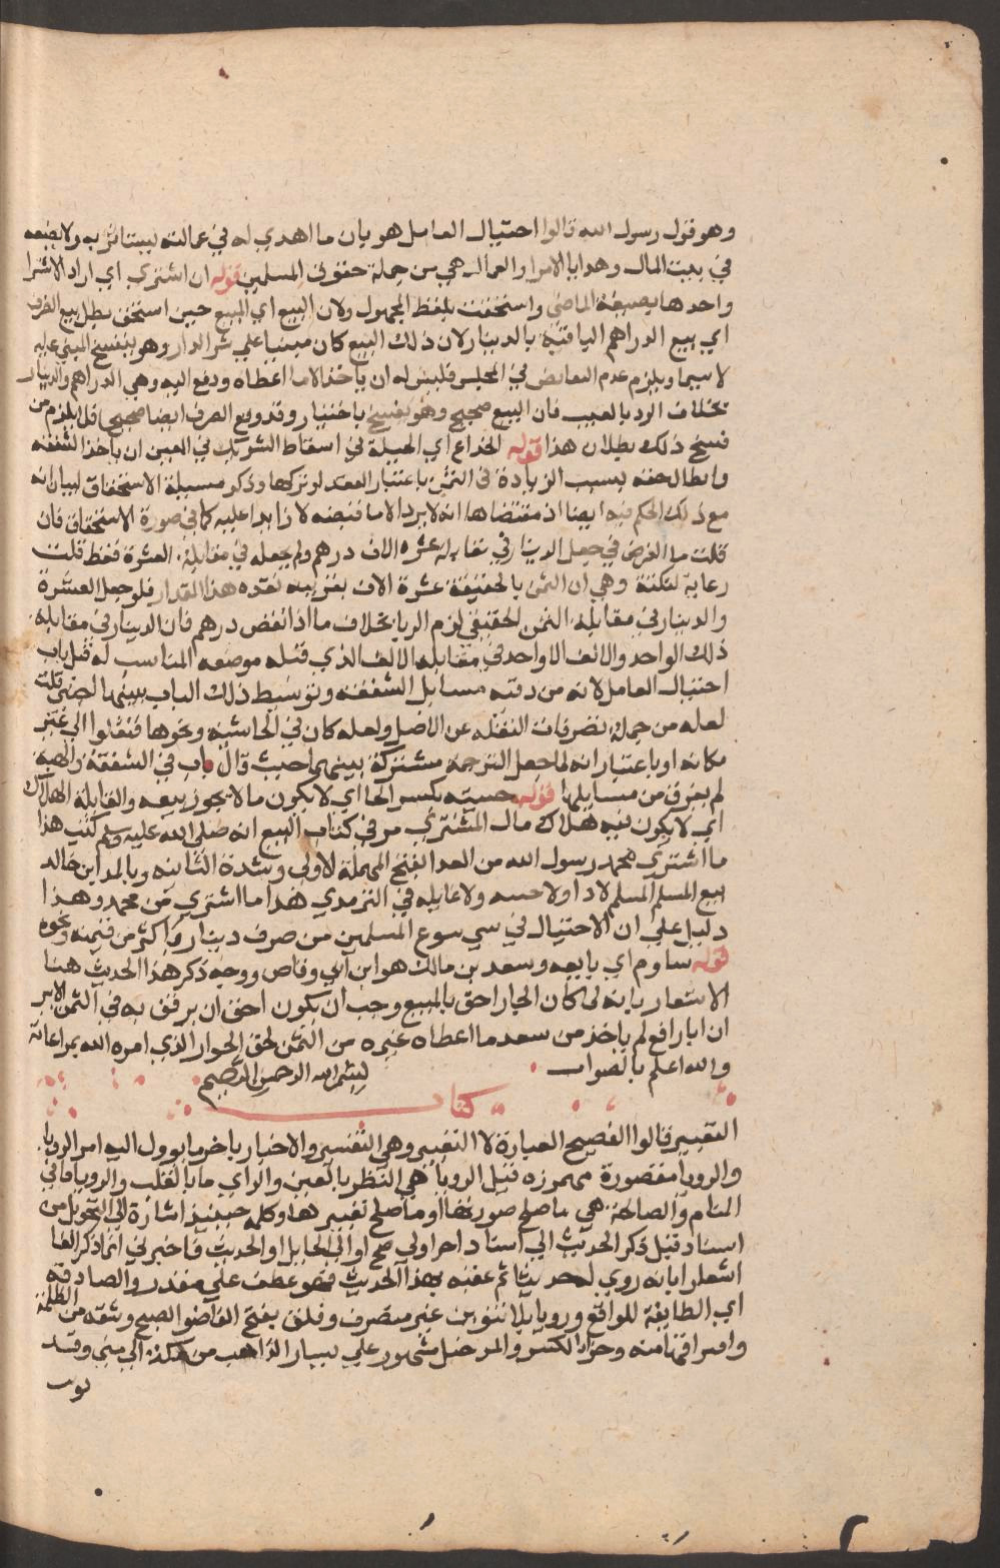 وهو قول رسول الله قالوا احتيال العامل هو بان ما اهدي له في عمالته يستاثر به ولا يضعه
في بيت المال وهدايا الامرا والعمال هي من جملة حقوق المسلمين قوله ان اشتري اي اراد الاشترا
واحدها بصيغة الماضي واستحقت بلفظ المجهول ولان البيع اي المبيع حين استحق بطل بيع الصرف
اي بيع الدراهم الباقية بالدينار لان ذلك البيع كان مبنيا علي شرا الدار وهو ينفسخ المبني عليه
لا سيما ويلزم عدم التقابض في المجلس فليس له ان ياخذ الا ما اعطاه ودفع اليه وهي الدراهم والدينار
بخلاف الرد بالعيب فان البيع صحيح وهو يفسخ باختيار وقد وقع الصرف ايضا صحيحا فلا يلزم من
فسخ ذلك بطلان هذا قوله الخداع اي الحيلة في اسقاط الشريك في الغبن ان ياخذ الشفعة
وابطال حقه بسبب الزيادة في الثمن باعتبار العقد لو تركها وذكر مسيلة الاستحقاق لبيان انه
مع ذلك الحكم فيه ايضا اذ مقتضاها انه لا يرد الا ما قبضه لا زايدا عليه كما في صورة الاستحقاق فان
قلت ما الغرض في جعل الدينار في مقابلة عشره الاف درهم ولم يجعله في مقابلة العشرة فقط قلت
رعاية لنكتة وهي ان الثمن بالحقيقة عشرة الاف بقرينة نقده هذا المقدار فلو جعل العشرة
والدينار في مقابلة الثمن الحقيقي لزم الربا بخلاف ما اذا نقض درهم فان الدينار في مقابلة
ذلك الواحد والالف الا واحد في مقابلة الالف الذي قبله موضعه المناسب له قبل باب
احتيال العامل لانه من دقية مسايل الشفعة وتوسيط ذلك الباب بينهما اجنبي قلت
لعله من جملة تصرفات النقله عن الاصل ولعله كان في الحاشية ونحوها فنقلوا الي غير
مكانه او باعتبار انه لما جعل الترجمة مشتركة بينهما حيث قال باب في الشفعة والهبة
لم يفرق من مسايلها قوله حبيثه بكسر الخا اي لا يكون ما لا يجوز بيعه والغايلة الهلاك
اي لا يكون فيه هلاك مال المشتري مر في كتاب البيع انه صلي الله عليه وسلم كتب هذا
ما اشتري محمد رسول الله من العدا بفتح المهملة الاولي وشدة الثانية وبالمد ابن خالد
بيع المسلم المسلم لا دا ولا خبثه ولا غايله في الترمذي هذا ما اشتري من محمد وهذا
دليل علي ان الاحتيال في شي سوع المسلمين من صرف دينار باكثر من قيمته ونحوه
قوله ساوم اي بايعه وسعد بن مالك هو ابن ابي وقاص ووجه ذكر هذا الحديث هنا
الاشعار بانه لما كان الجار احق بالمبيع وجب ان يكون احق ان يرفق به في الثمن الاير
ان ابا رافع لم ياخذ من سعد ما اعطاه غيره من الثمن لحق الجوار الذي امره الله بمراعاته
والله اعلم بالصواب بسم الله الرحمن الرحيم
كتاب
التعبير قالوا الفصيح العبارة لا التعبير وهي التفسير والاخبار باخر ما يوول اليه امر الرويا
والرويا مقصورة مهموزه قيل الرويا هي النظر بالعين والراي ما بالقلب والرويا ما في
المنام والصالحة هي ما صلح صورتها او ما صلح تعبيرها وكلمة حينيذ اشارة الي التحويل من
اسناد قبل ذكر الحديث الي اسناد اخر اولي صح او الي الحايل او الحديث فاخبرني انما ذكر الفا
اشعارا بانه روي له حديثا ثم عقبه بهذا الحديث فهو عطف علي مقدر والصادقة
اي الطابقة للواقع ورويا بلا تنوين غير منصرف وفلق بفتح الفا ضوا الصبح وشقه من الظلمة
وافتراقها منه وحرا بالكسر والمد جبل مشهور علي يسار الذاهب من مكة الي مني وقد